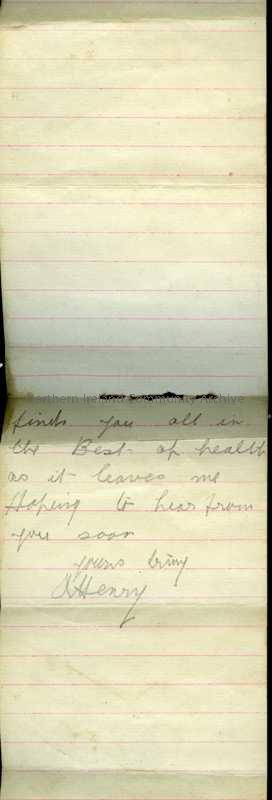 Northern Ireland Community Archive
finds you all in
the Best of health
as it leaves me
Hoping to hear from
you soon
yours truly
Henry